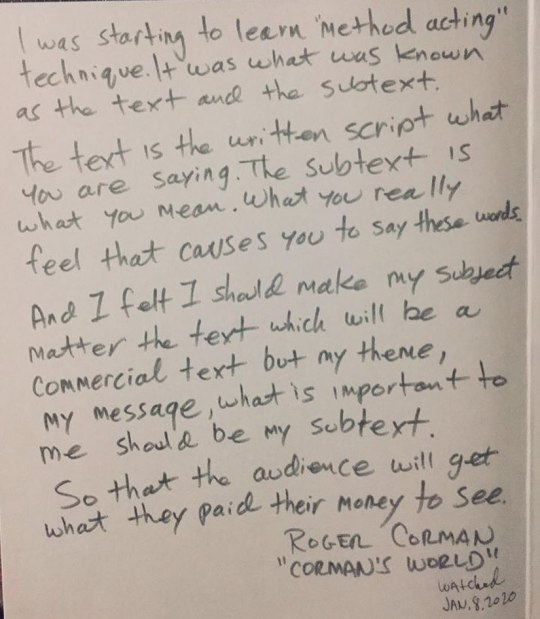 I was starting to learn "method acting"
technique. It was what was known
as the text and the subtext.
The text is the written script what
you are saying. The subtext is
what you mean. What you really
feel that causes you to say these words.
And I felt I should make my subject
matter the text which will be a
commercial text but my theme,
my message, what is important to
me should be my subtext.
So that the audience will get
what they paid their money to see.
ROGER CORMAN
"CORMAN'S WORLD"
watched
JAN. 8, 2020